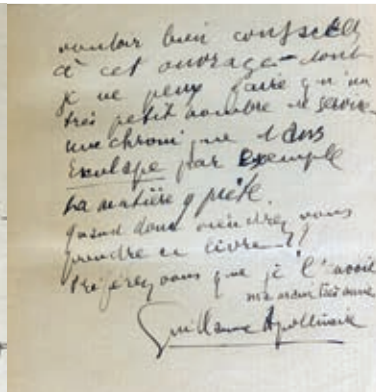 vouloir bien consacrer
à cet ouvrage dont
je ne peux faire qu'un
très petit nombre de service
une chronique dans
Esculape par exemple
La matière y prête.
quand donc viendrez vous
prendre ce livre
Préférez vous que je l'envoie
Guillaume Apollinaire